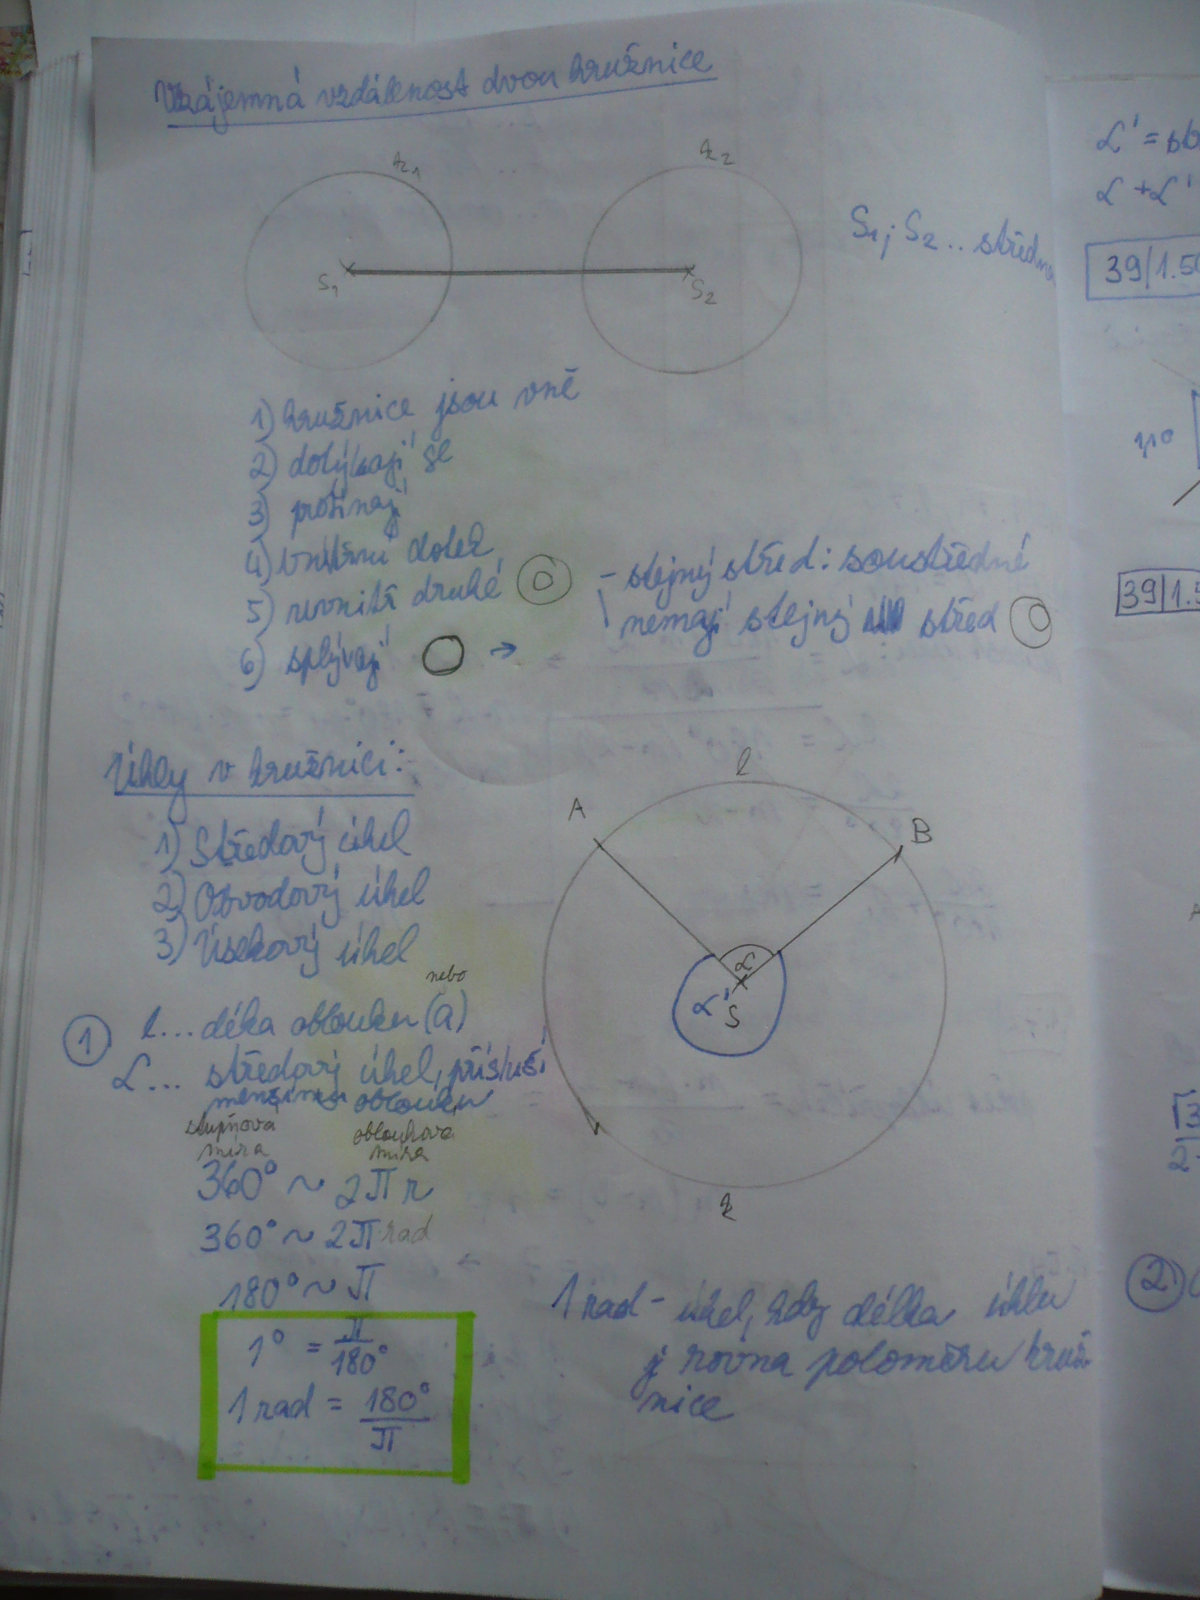 Vzájemná vzdálenost dvou kružnic
k1
k2
S1
S2
S1; S2 .. středna
1) kružnice jsou vně
2) dotýkají se
3) protínají
4) vnitřní dotek
5) uvnitř druhé
- stejný střed: soustředné
nemají stejný střed
6) splývají →
Úhly v kružnici:
1) Středový úhel
2) Obvodový úhel
3) Úsekový úhel
l
A
B
α
α'
S
k
nebo
1 l... délka oblouku (a)
α... středový úhel, přísluší
menšímu oblouku
stupňová míra
oblouková míra
360° ~ 2πr
360° ~ 2π rad
180° ~ π
1° = π/180°
1 rad = 180°/π
1 rad - úhel, kdy délka úhlu
je rovna poloměru kruž
nice
α' =
α + α'
39/1.50
39/1.5
2